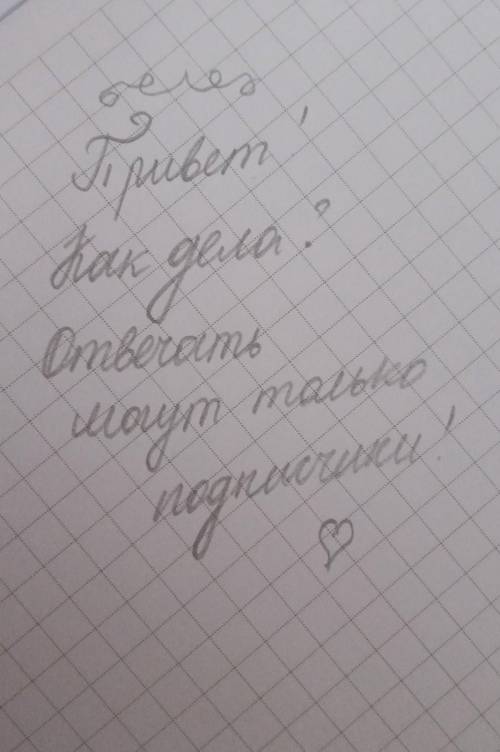 Привет!
Как дела?
Отвечать
могут только
подписчики!